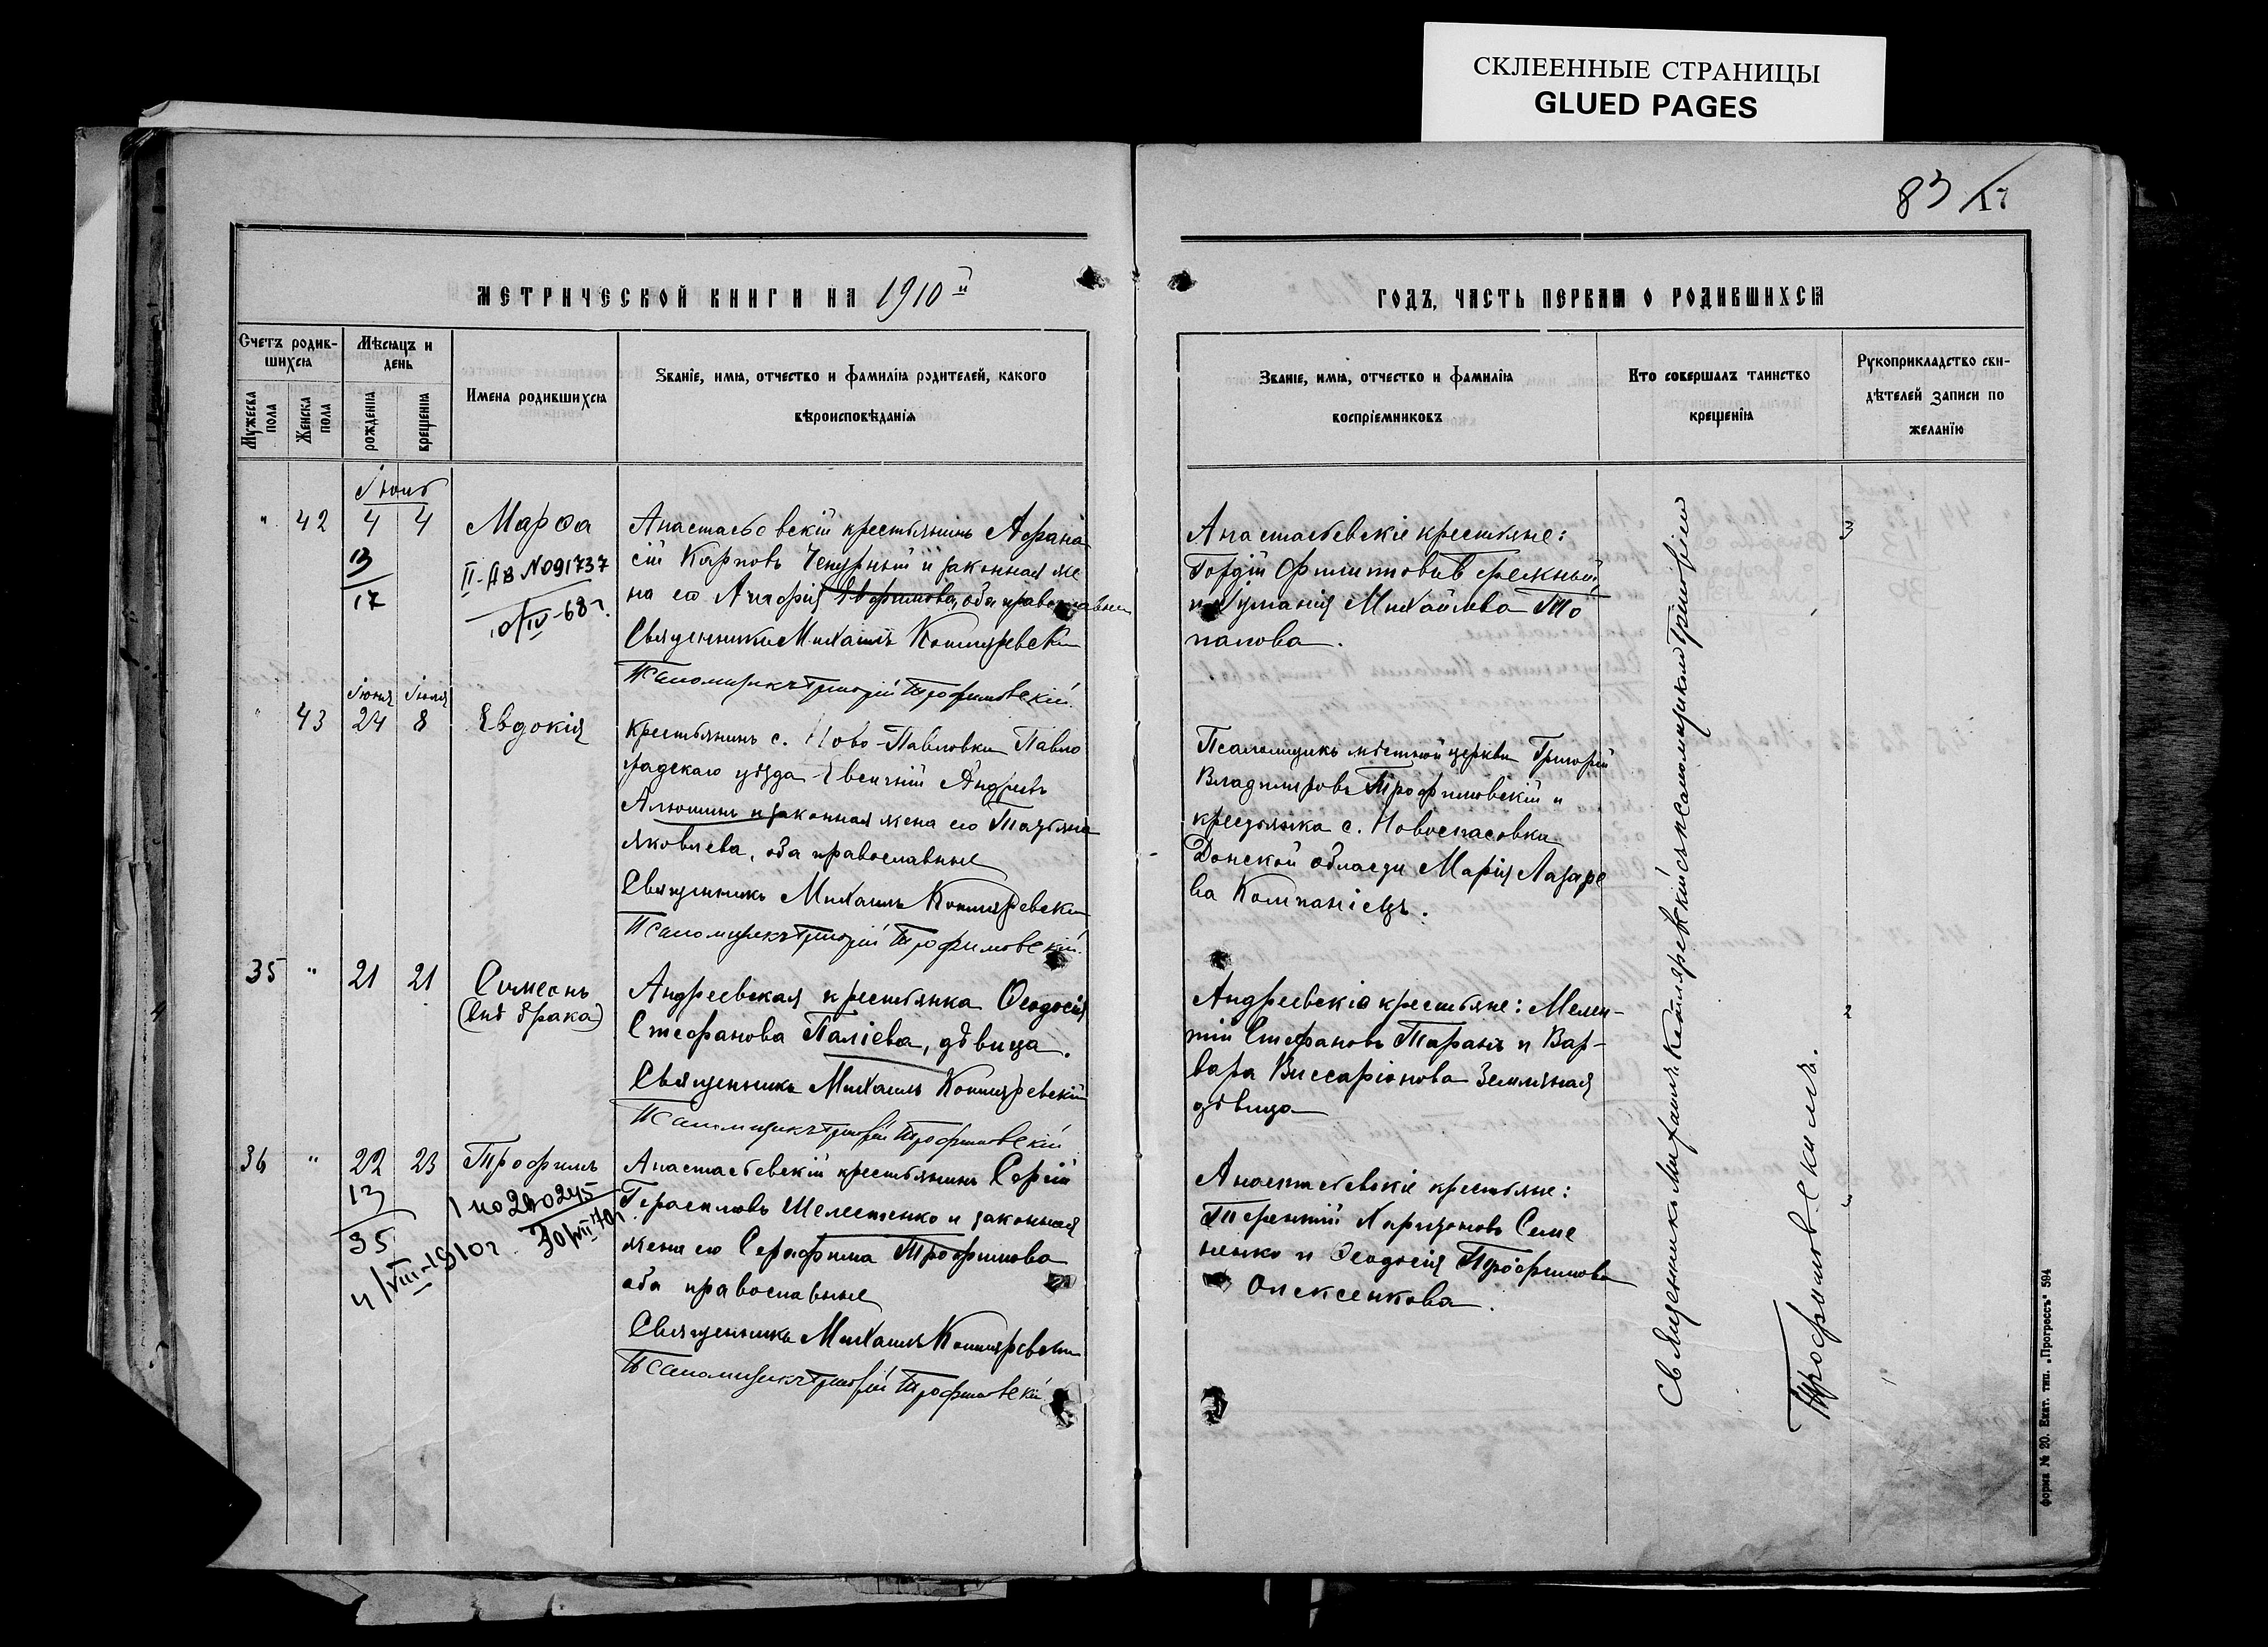 СКЛЕЕННЫЕ СТРАНИЦЫ
GLUED PAGES
МЕТРИЧЕСКОЙ КНИГИ НА 1910й
Счетъ родив-
шихся
Мѣсяцъ и
день
Мужеска
пола
Женска
пола
рожденія
крещенія
Имена родившихся
Званіе, имя, отчество и фамилія родителей, какого
вѣроисповѣданія
42 4 4
13
17
Марѳа
II-АВ №091737
10/IV-68г.
Анастасьевскій крестьянинъ Аѳана
сій Карповъ Чепурный и законная же
на его Агаѳія Евфимова, оба православные
Священникъ Михаилъ Котляревскій
Псаломщикъ Григорій Трофимовскій
Іюня Іюля
43 24 8 Евдокія
Крестьянинъ с. Ново-Павловки Павло
градскаго уѣзда Евсигній Андреевъ
Алюшинъ и законная жена его Татьяна
Яковлева, оба православные
Священникъ Михаилъ Котляревскій
Псаломщикъ Григорій Трофимовскій
35 " 21 21 Симеонъ
(внѣ брака)
Андреевская крестьянка Ѳеодосія
Стефанова Паліева, дѣвица.
Священникъ Михаилъ Котляревскій
Псаломщикъ Григорій Трофимовскій
36 " 22 23 Трофимъ
13
35
4/VIII-1910г
30/VII 70г
Анастасьевскій крестьянинъ Сергій
Герасимовъ Шелестенко и законная
жена его Серафима Трофимова
оба православные
Священникъ Михаилъ Котляревскій
Псаломщикъ Григорій Трофимовскій
83
17
ГОДЪ, ЧАСТЬ ПЕРВАЯ О РОДИВШИХСЯ
Званіе, имя, отчество и фамилія
воспріемниковъ
Кто совершалъ таинство
крещенія
Рукоприкладство сви-
дѣтелей записи по
желанію
Анастасьевскіе крестьяне:
Гордій Филипповъ
Михайлова То
палова.
Псаломщикъ мѣстной церкви Григорій
Владиміровъ Трофимовскій и
крестьянка с. Новоспасовки
Донской области Марія Лазаре
ва Компаніецъ.
Андреевскіе крестьяне: Мелен-
тій Стефановъ Таранъ и Вар-
вара Виссаріонова Земляная
дѣвица
Анастасьевскіе крестьяне:
Терентій Харитоновъ Семе
ненко и Ѳеодосія Трофимова
Олексенкова.
Священникъ Михаилъ Котляревскій съ псаломщикомъ Григоріемъ
Трофимовскимъ.
форма № 20. Екат. тип. „Прогрессъ“ 594